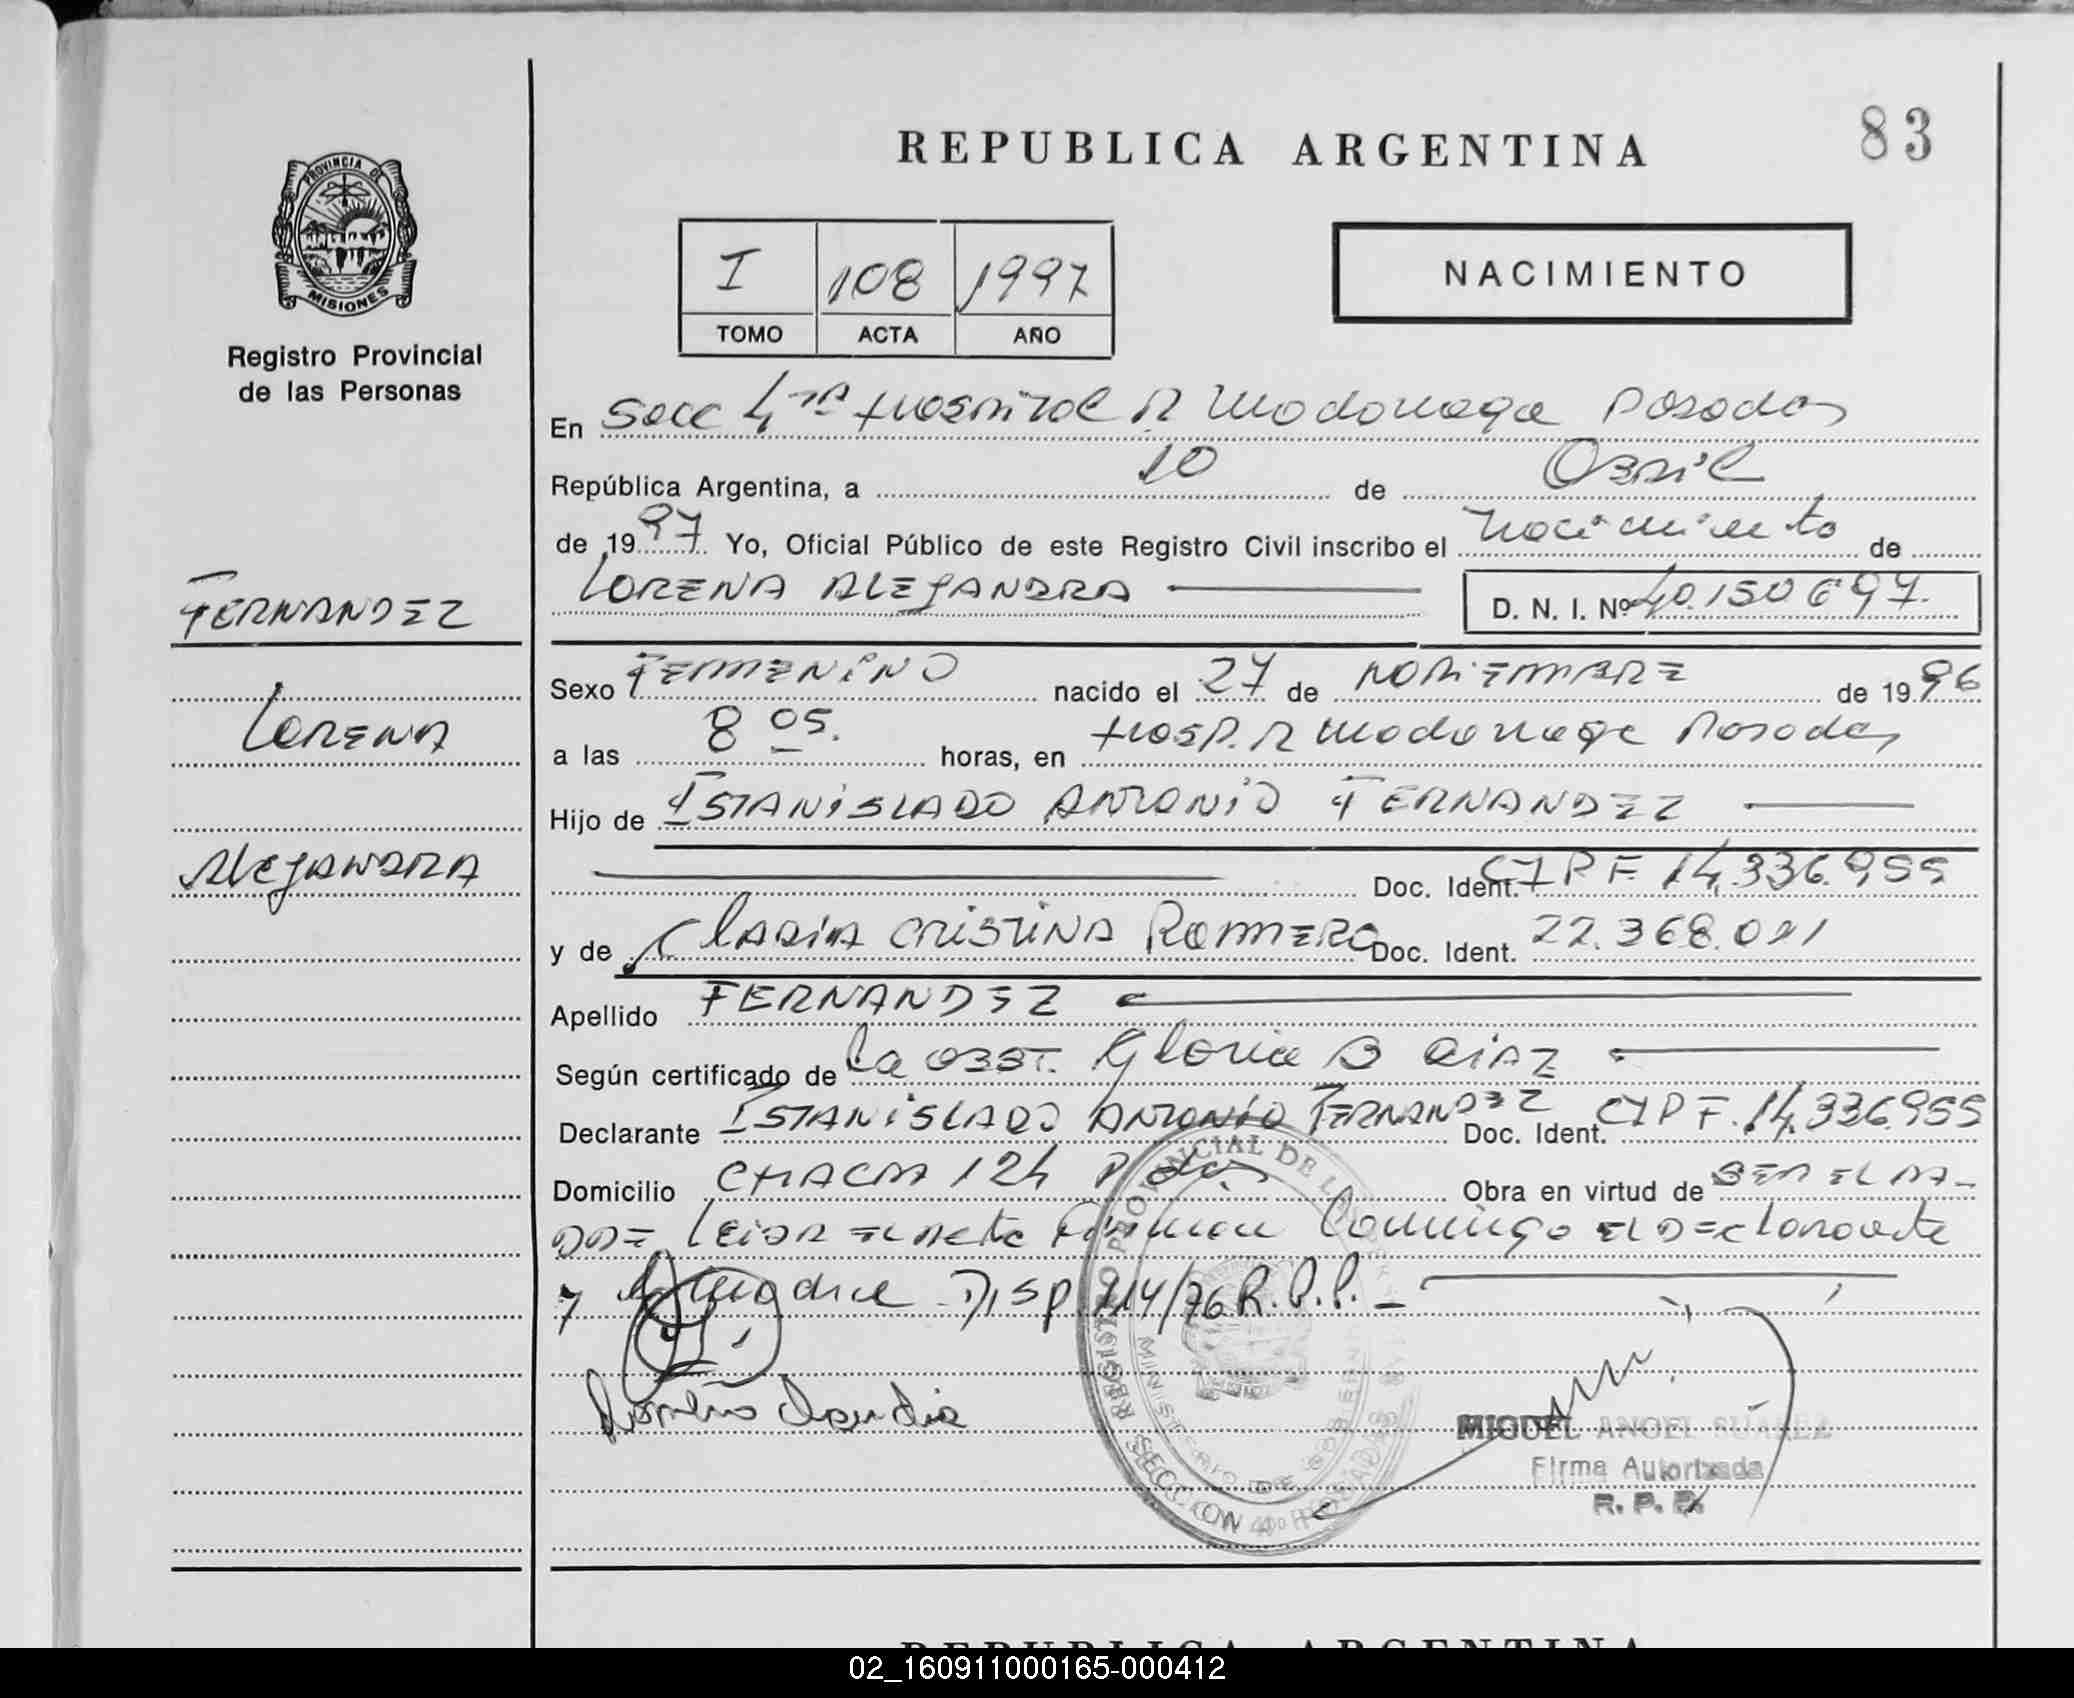 REPUBLICA ARGENTINA
83
PROVINCIA DE
MISIONES
Registro Provincial
de las Personas
I 108 1997
TOMO ACTA AÑO
NACIMIENTO
En Secc 4ta Hospital R Madariaga Posadas
República Argentina, a 10 de Abril
de 1997 Yo, Oficial Público de este Registro Civil inscribo el nacimiento de
LORENA ALEJANDRA D. N. I. Nº 40.150.697.
FERNANDEZ
Sexo FEMENINO nacido el 27 de NOVIEMBRE de 1996
LORENA
a las 8 05. horas, en Hosp. R Madariaga Posadas
Hijo de ESTANISLADO ANTONIO FERNANDEZ
ALEJANDRA
Doc. Ident. CIPF. 14.336.955
y de CLADIA CRISTINA ROMERO Doc. Ident. 22.368.091
Apellido FERNANDEZ
Según certificado de La OBST. Gloria B DIAZ
Declarante ESTANISLADO ANTONIO FERNANDEZ Doc. Ident. CIPF. 14.336955
Domicilio CHACRA 124 Pdas Obra en virtud de SER EL PA-
DRE Leida el Acta Firman Conmigo EL DEclarante
y la madre Disp. 214/76 R.P.P.
Romero Claudia
REGISTRO PROVINCIAL DE LAS PERSONAS
MINISTERIO DE GOBIERNO
SECCION 4º POSADAS
MIGUEL ANGEL SUAREZ
Firma Autorizada
R. P. P.
REPUBLICA ARGENTINA
02_160911000165-000412